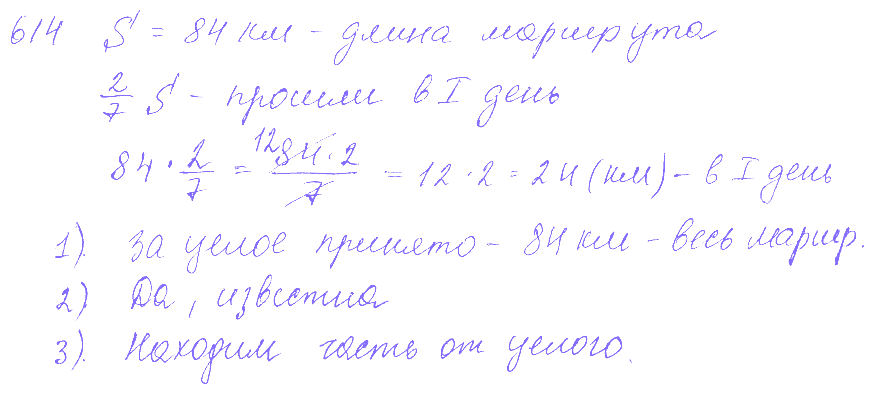 614 S = 84 км - длина маршрута
2/7 S - прошли в I день
84 · 2/7 = 12 84 · 2 / 7 = 12 · 2 = 24 (км) - в I день
1). За целое принято - 84 км - весь маршр.
2) Да, известна
3). Находим часть от целого.